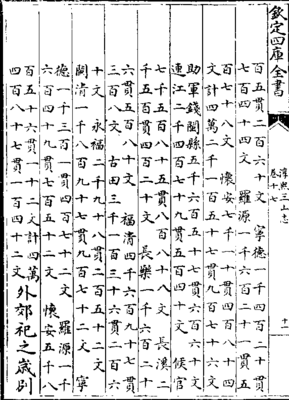 欽定四庫全書
淳熙三山志
卷十七
十一
百五貫二百六十文 寧德一千四百二十貫
七百四十四文 羅源一千六百二十一貫五
百七十八文 懷安七千一十貫四百八十四
文計四萬二千一百五十七貫九百七十六文
助軍錢閩縣五千六百五十七貫六百六十文
連江二千四百七十九貫五百四十文 候官
七千五百八十五貫八百八十八文 長溪二
千五百貫四百二十文 長樂一千六百二十
六貫五百一十七文 福清四千六百九十七貫
三百八文 古田三千一百三十六貫二百六
十文 永福二千九十八貫二百五十二文
閩清一千八百九十七貫九百七十二文 寧
德一千三百一貫四百七十二文 羅源一千
六百四十九貫七百五十文 懷安五千八
百五十六貫一百一十二文計四萬
四百八十七貫一百四十二文
外郊祀之歲別